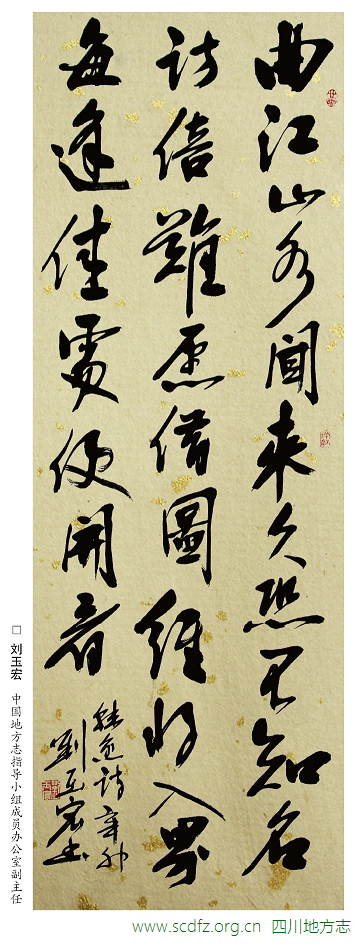 曲江山水聞來久恐不知名
訪倍難愿借圖經將入界
每逢佳處便開看
韓愈詩辛卯
劉玉宏書
□ 刘玉宏 中国地方志指导小组成员办公室副主任
www.scdfz.org.cn 四川地方志